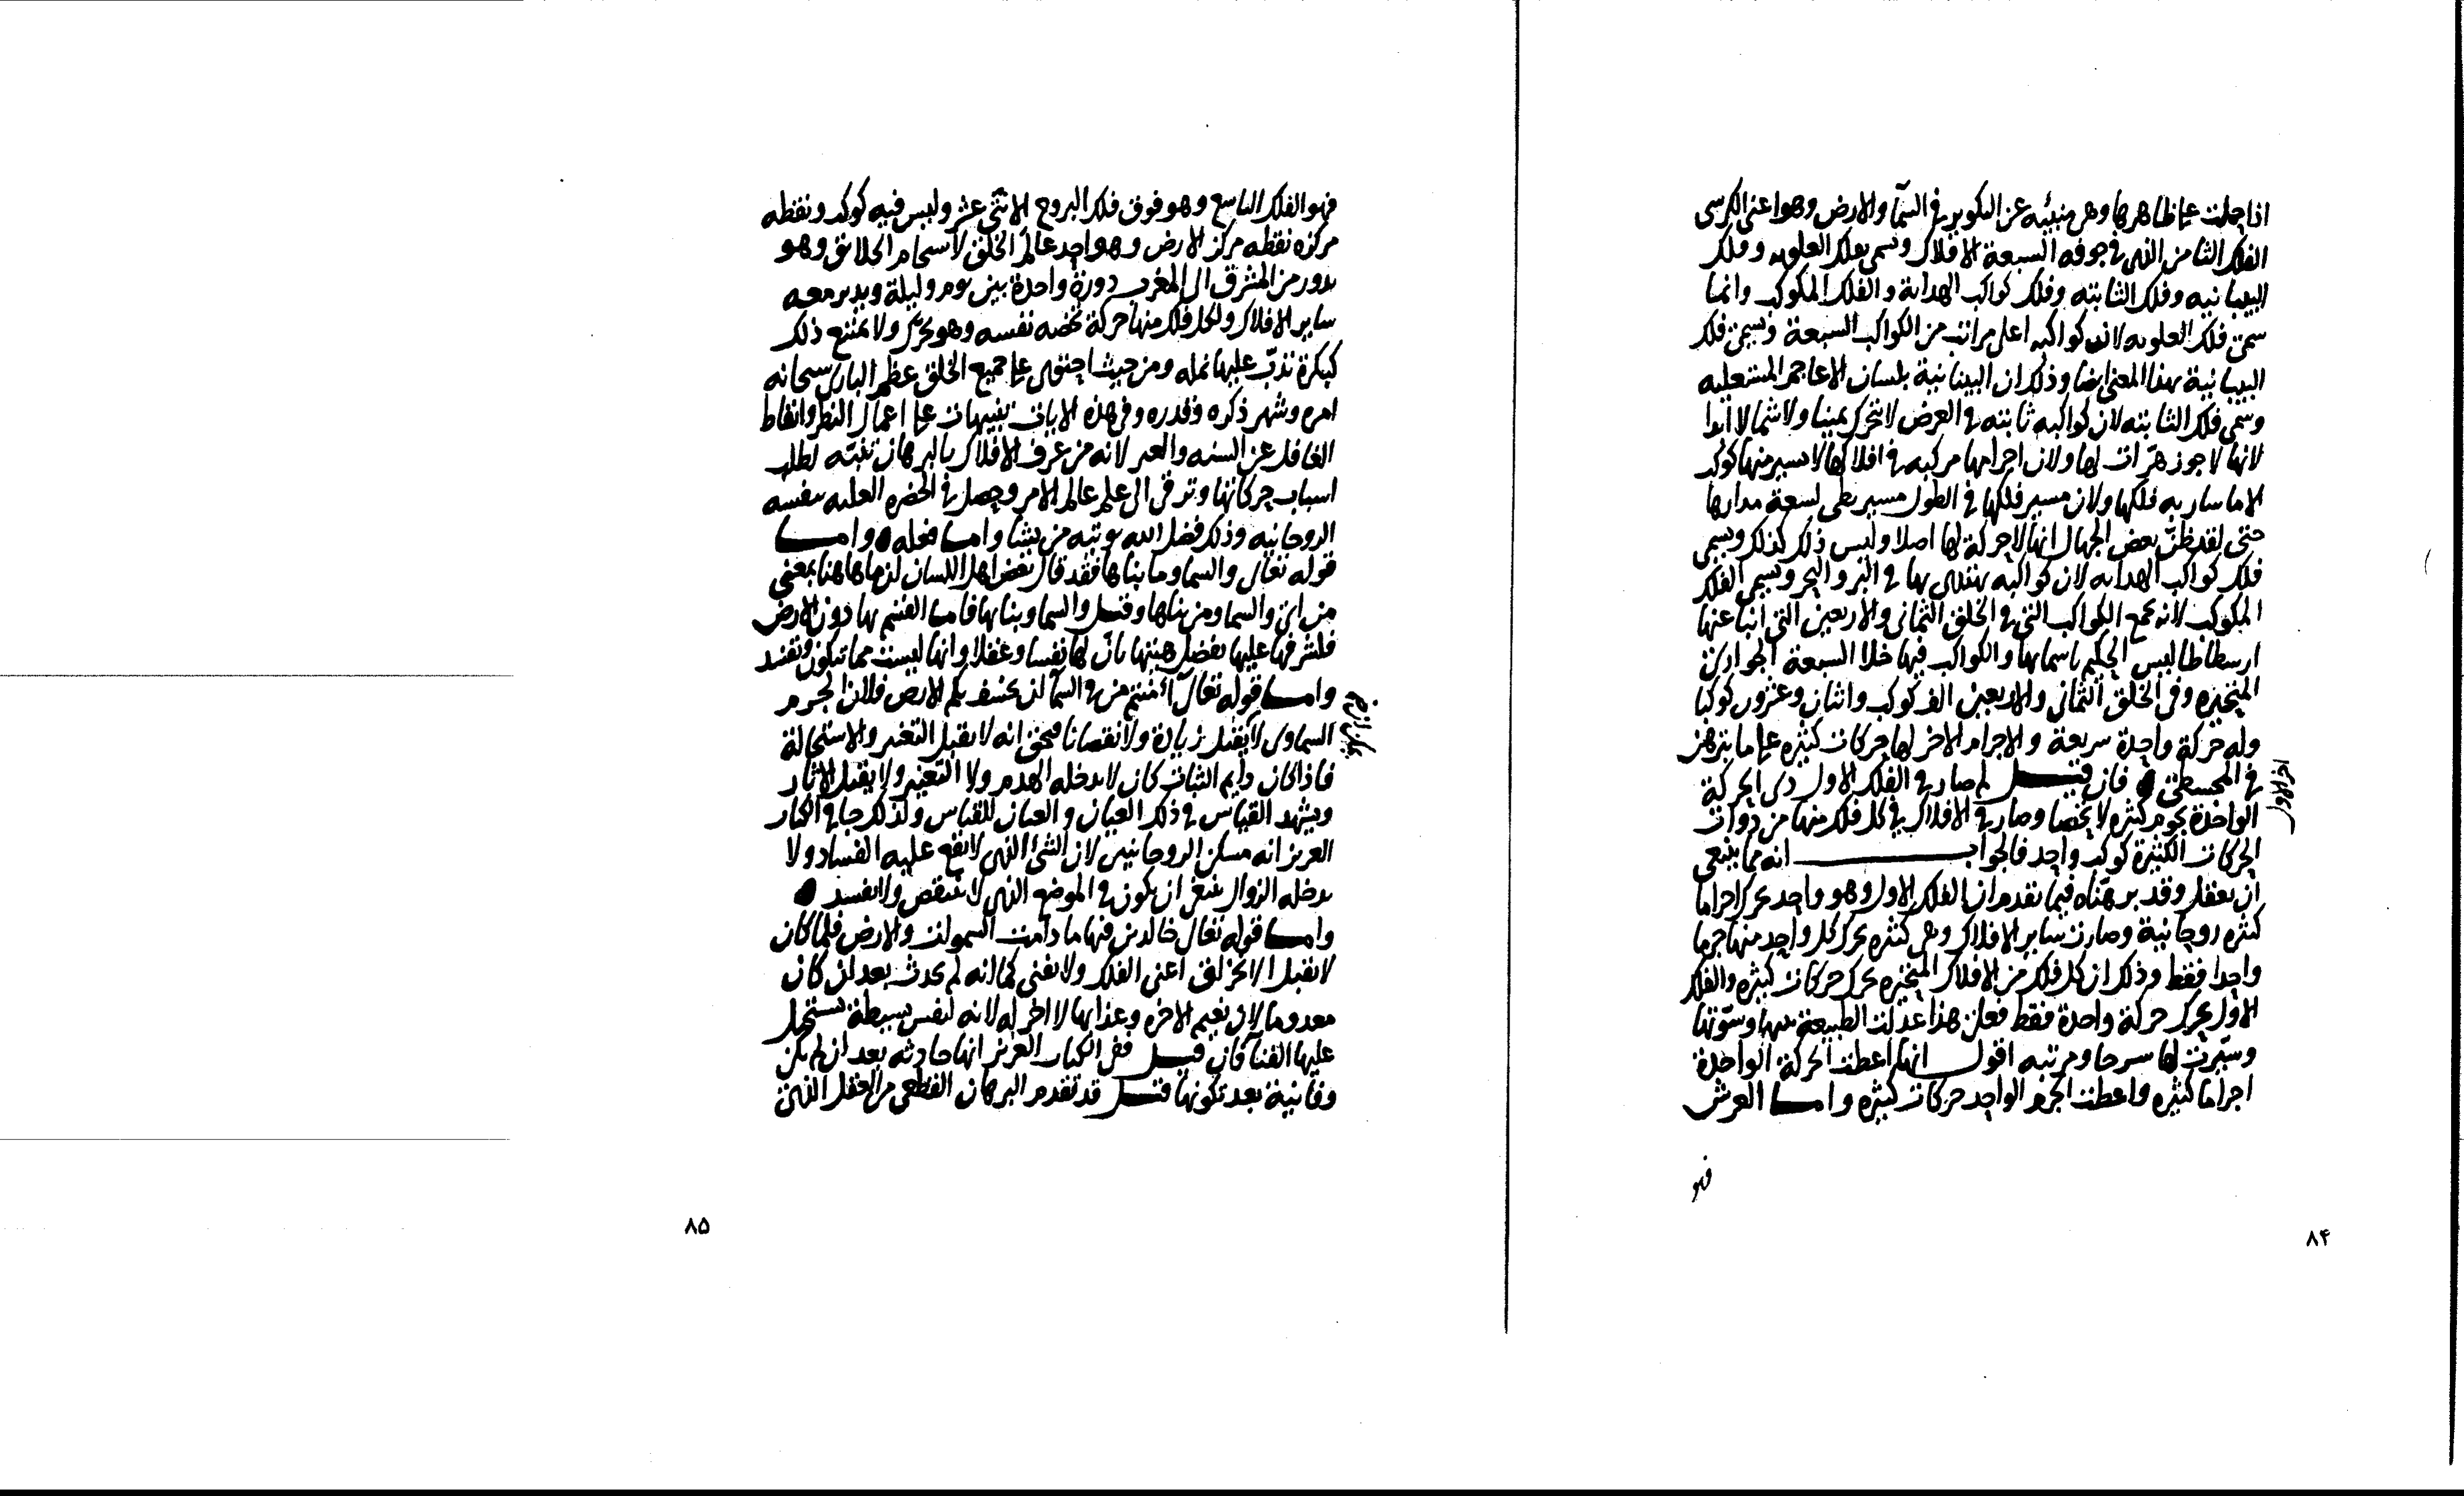 اذا حملت على ظاهرها وهى منبئه عن التكوير فى السمآ والارض وهو اعنى الكرسى
الفلك الثامن الذى فى جوفه السبعة الافلاك وتسمى بفلك العلويه وفلك
البيبانيه وفلك الثابته وفلك كواكب الهداية والفلك المكوكب وانما
سمى فلك العلويه لان كواكبه اعلى مراتب من الكواكب السبعة ويسمى فلك
البيبانية بهذا المعنى ايضا وذلك ان البيبانية بلسان الاعاجم المستعليه
وسمى فلك الثابته لان كواكبه ثابته فى العرض لا تتحرك يمينا ولا شمالا ابدا
لانها لا جوزهرات لها ولان اجرامها مركبه فى افلاكها لا يسير منها كوكب
الا ما سار به فلكها ولان مسير فلكها فى الطول مسير بطى لسعة مدارها
حتى لقد ظن بعض الجهال انها لا حركة لها اصلا وليس ذلك كذلك ويسمى
فلك كواكب الهدايه لان كواكبه يهتدى بها فى البر والبحر ويسمى الفلك
المكوكب لانه يجمع الكواكب التى فى الخلق الثمانى والاربعين التى انبا عنها
ارسطاطاليس الحكيم باسمايها والكواكب فيها خلا السبعة الجوارى
المتحيره وفى الخلق الثمانى والاربعين الف كوكب واثنان وعشرون كوكبا
وله حركة واحدة سريعة والاجرام الاخر لها حركات كثيره على ما يتبرهن
فى المجسطى فان قيل لم صار فى الفلك الاول ذى الحركة
الواحدة نجوم كثيره لا تحصا وصار فى الافلاك فى كل فلك منها من ذوات
الحركات الكثيرة كوكب واحد فالجواب انه مما ينبغى
ان يعقل وقد برهناه فيما تقدم ان الفلك الاول وهو واحد يحرك اجراما
كثيره روحانية وصارت ساير الافلاك وهى كثيره يحرك كل واحد منها جرما
واحدا فقط وذلك ان كل فلك من الافلاك المتحيره يحرك حركات كثيره والفلك
الاول يحرك حركة واحدة فقط فعلى هذا عدلت الطبيعة بينها وسوتها
وصيرت لها شرحا ومرتبه اقول انها اعطت الحركة الواحدة
اجراما كثيره واعطت الجرم الواحد حركات كثيره واما العرش
فهو
٨۴
فهو الفلك التاسع وهو فوق فلك البروج الاثنى عشر وليس فيه كوكب ونقطه
مركزه نقطه مركز الارض وهو احد عالم الخلق لاستحام الخلايق وهو
يدور من المشرق الى المغرب دورة واحدة بين يوم وليلة ويدير معه
ساير الافلاك ولكل فلك منها حركة تخصه نفسه وهو يحرك ولا يمتنع ذلك
ككرة تدب عليها نمله ومن حيث احتوى على جميع الخلق عظم البارى سبحانه
امره وشهر ذكره وقدره وفى هذه الايات تنبيهات على اعمال النظر وايقاظ
الغافل عن السنه والعبر لانه من عرف الافلاك بالبرهان تنبه لطلب
اسباب حركاتها وترقى الى علم عالم الامر وحصل فى الحضره العليه بنفسه
الروحانيه وذلك فضل الله يوتيه من يشا واما فعله واما
قوله تعالى والسما وما بناها فقد قال بعض اهل اللسان ان ما هاهنا بمعنى
من اى والسما ومن بناها وقيل والسما وبنايها فاما القسم بها دون الارض
فلشرفها عليها بفضل هيئتها بان لها نفسا وعقلا وانها ليست مما يتكون ويفسد
واما قوله تعالى أامنتم من فى السمآ ان يخسف بكم الارض فلان الجرم
السماوى لا يقبل زيادة ولا نقصانا فبحق انه لا يقبل التغير والاستحالة
فاذا كان دايم الثبات كان لا يدخله الهدم ولا التغير ولا يقبل الاثار
ويشهد القياس فى ذلك العيان والعيان للقياس ولذلك جا فى الكتاب
العزيز انه مسكن الروحانيين لان الشئ الذى لا يقع عليه الفساد ولا
يدخله الزوال ينبغى ان يكون فى الموضع الذى لا ينتقص ولا يفسد
واما قوله تعالى خالدين فيها ما دامت السموات والارض فلما كان
لا يقبل الانخراق اعنى الفلك ولا يفنى كما انه لم يحدث بعد ان كان
معدوما لان نعيم الاخره وعذابها لا اخر له لانه لنفس بسيطة يستحيل
عليها الفنآ فان قيل ففى الكتاب العزيز انها حادثه بعد ان لم تكن
وفانية بعد تكونها قيل قد تقدم البرهان القطعى من العقل الذى
٨۵